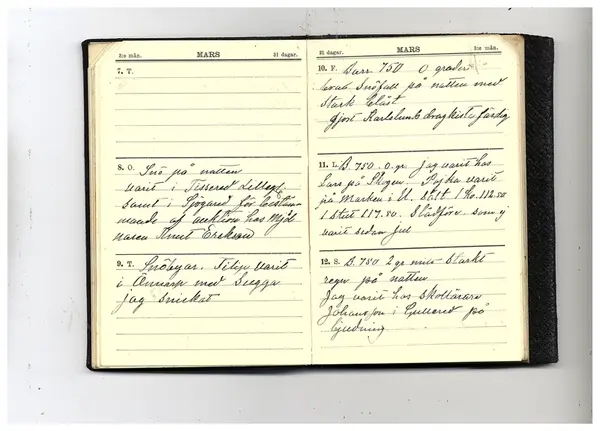 3:e mån. MARS 31 dagar.
7. T.
8. O. Snö på natten
varit i Tissered Lilleg
samt i Sjögard för bestäm-
mande af auktion hos Mjöl-
naren Knut Erikson
9. T. Snöbyar. Filip varit
i Önnarp med Sugga
jag snickat
31 dagar. MARS 3:e mån.
10. F. Barr. 750 0 grader
Snöfall på natten med
Stark blåst
gjort Karlslunds dragkista färdig
11. L. B. 750. 0 gr. Jag varit hos
Lars på Skogen. Pojka varit
på Marken i U. sålt 1 Ko. 112.50
1 Stut 117.50. Slädföre som ej
varit sedan Jul
12. S. B. 750 2 gr mill Starkt
regn på natten
Jag varit hos Skollärare
Johansson i Gullered på
bjudning